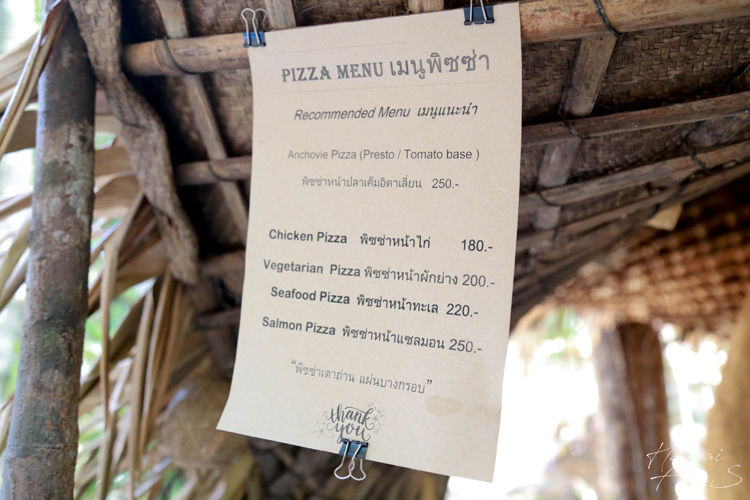 PIZZA MENU เมนูพิซซ่า
Recommended Menu เมนูแนะนำ
Anchovie Pizza (Presto / Tomato base )
พิซซ่าหน้าปลาเค็มอิตาเลี่ยน 250.-
Chicken Pizza พิซซ่าหน้าไก่ 180.-
Vegetarian Pizza พิซซ่าหน้าผักย่าง 200.-
Seafood Pizza พิซซ่าหน้าทะเล 220.-
Salmon Pizza พิซซ่าหน้าแซลมอน 250.-
“พิซซ่าเตาถ่าน แผ่นบางกรอบ”
thank
you